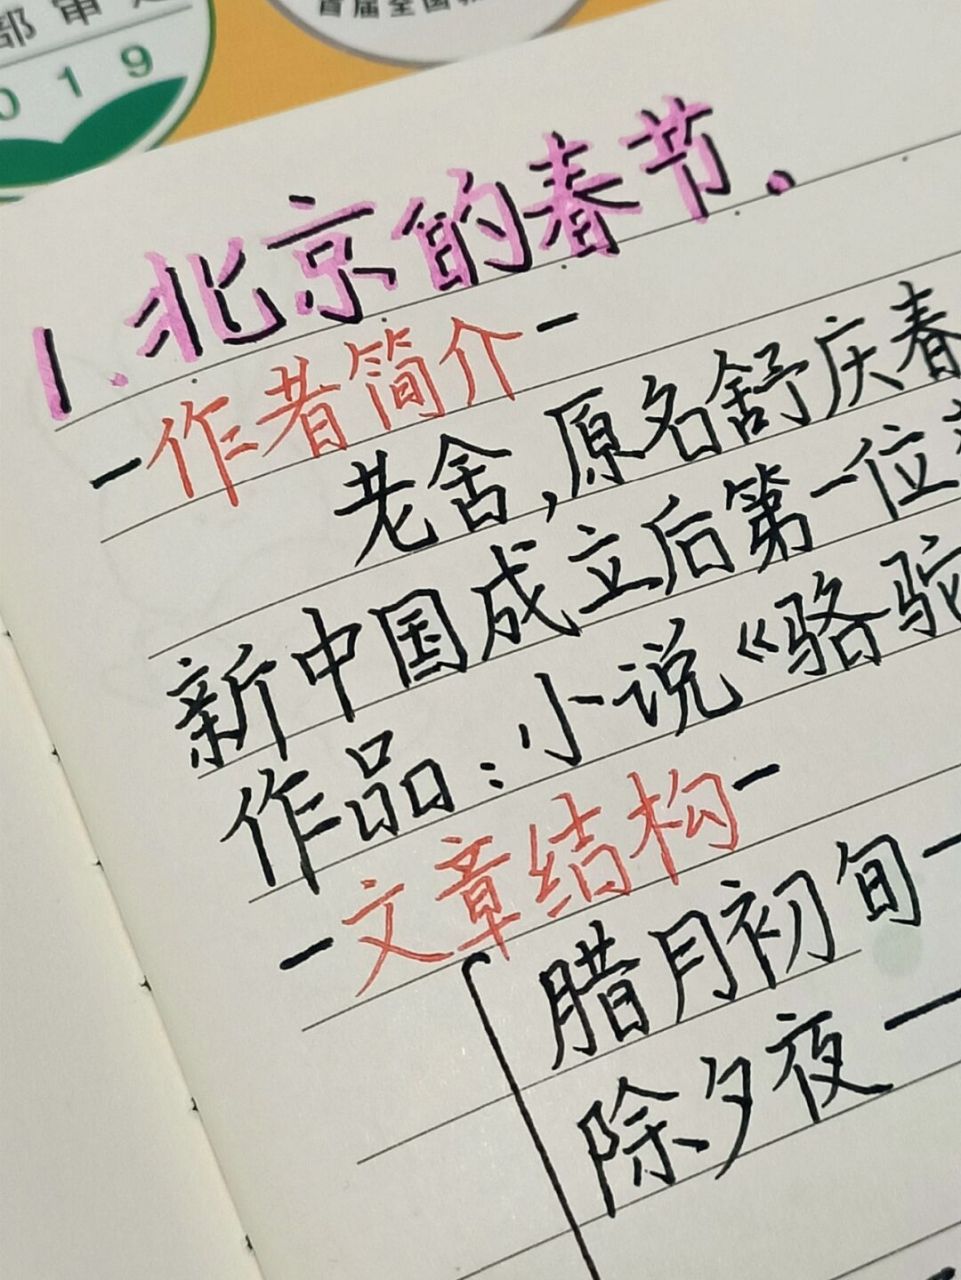 部审
2019
首届全国
1.北京的春节.
-作者简介-
老舍,原名舒庆春
新中国成立后第一位
作品:小说《骆驼
-文章结构-
腊月初旬—
除夕夜—